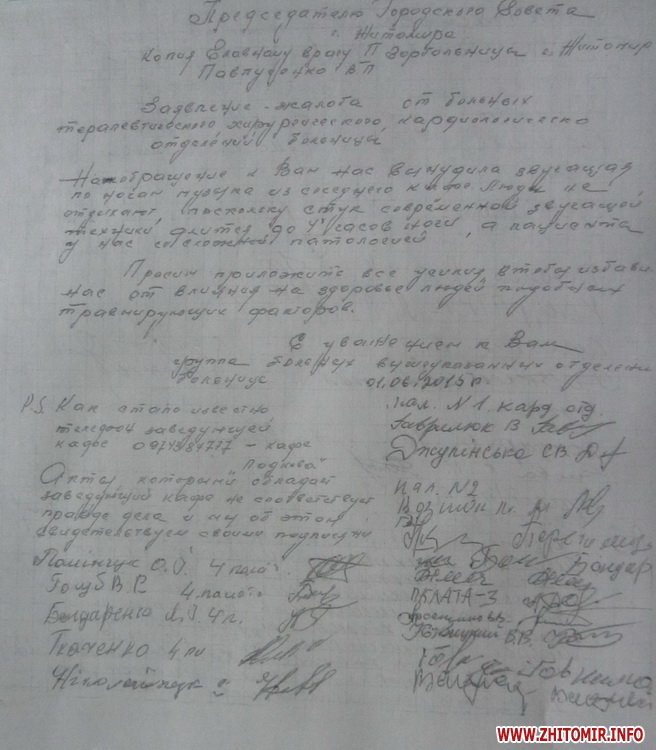 Председателю Городского Совета
г. Житомира
копия Главному врагу II горбольницы г. Житомир
Павлученко ВП
Заявление-жалоба от больных
терапевтического, хирургического, кардиологическо
отделений больницы
На обращение к Вам нас вынудила звучащая
по ночам музыка из соседнего кафе. Люди не
отдыхают, поскольку стук современной звучащей
техники длится до 4х часов ночи, а пациента
у нас со сложной патологией.
Просим приложить все усилия чтобы избави
нас от влияния на здоровье людей подобных
травмирующих факторов.
С уважением к Вам
группа больных вышеуказанных отделени
больницы 01.06.2015 г.
P.S Как стало известно
телефон заведующей
кафе - кафе
"Подкова"
Акты, которыми обладает
заведующий кафе не соответствует
правде дела и мы об этом
свидетельствуем своими подписями
О.І. 4 палата
Голуб В.С 4 палата
Бондаренко 4 п.
Ткаченко 4 па
Ніколайчук
пал. N1 кард отд.
Гаврилюк В
Джупінська СВ
Пал. N2
Бондар
ПАЛАТА-3
В.В.
WWW.ZHITOMIR.INFO